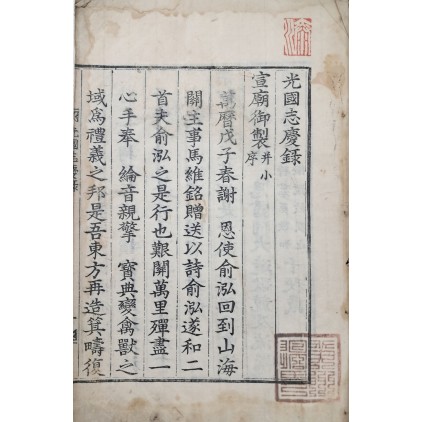 光國志慶錄
宣廟御製并小序
萬曆戊子春謝 恩使俞泓回到山海
關主事馬維銘贈送以詩俞泓遂和二
首夫俞泓之是行也艱關萬里殫盡一
心手奉 綸音親擎 寶典變禽獸之
域爲禮義之邦是吾東方再造箕疇復
光國志慶錄